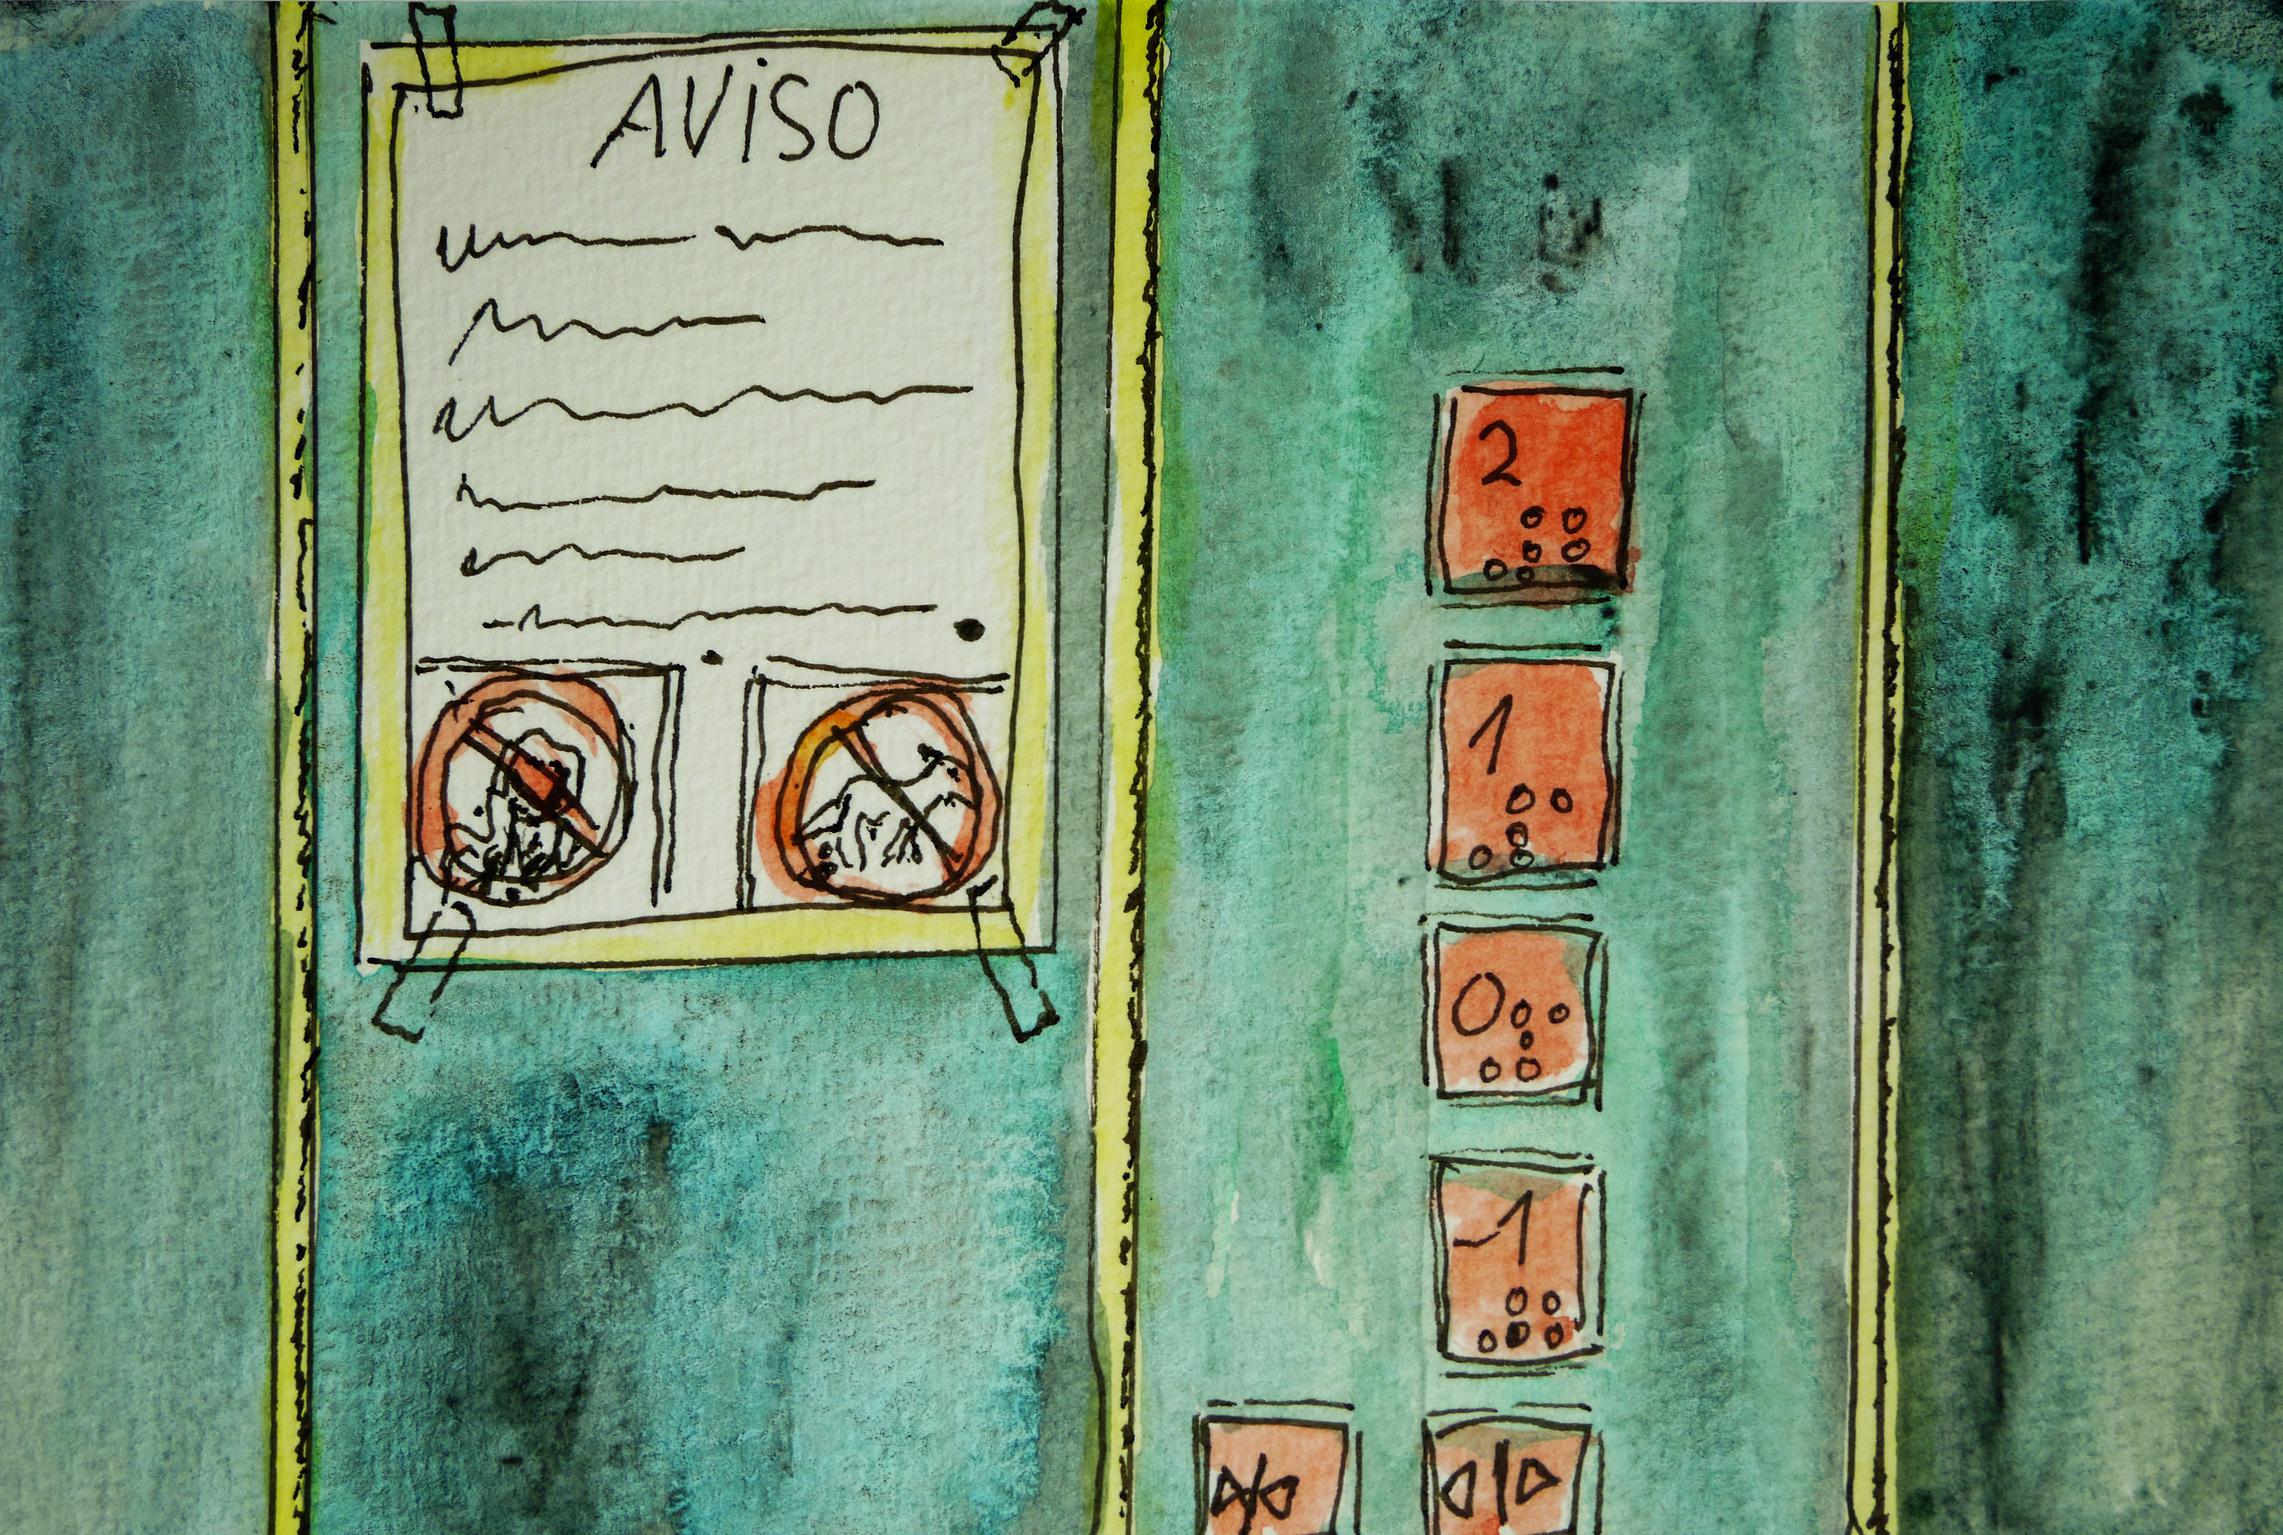 AViSO
2
1
0
-1